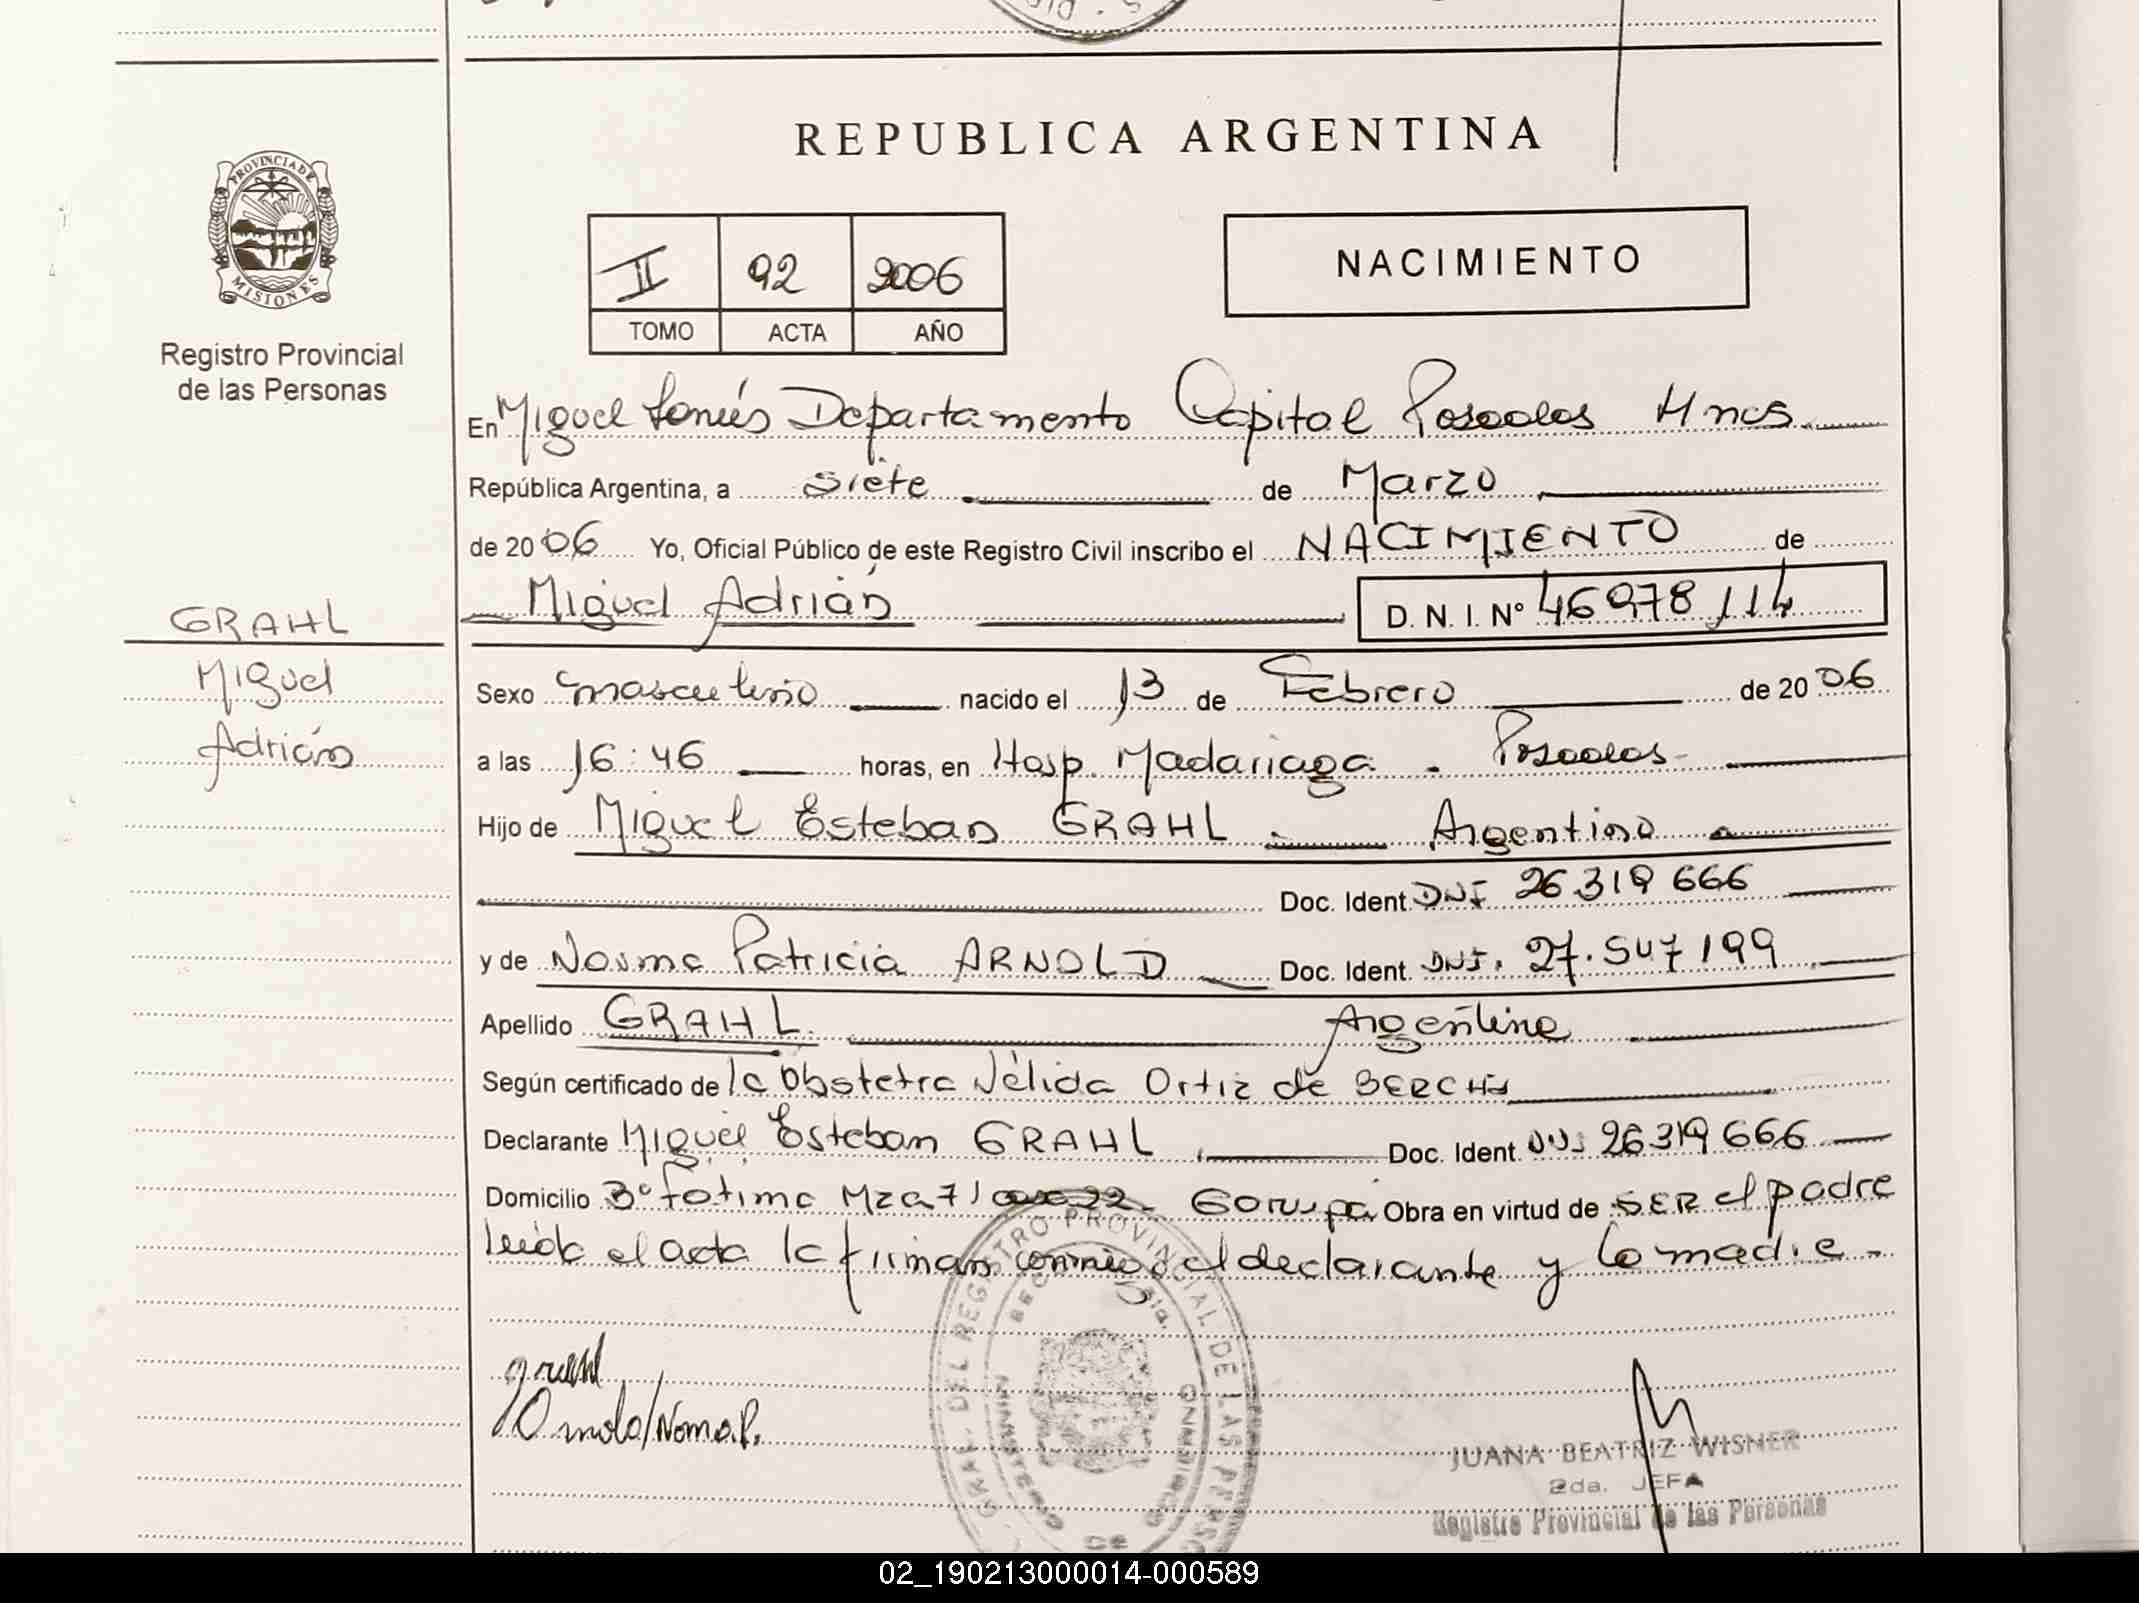 REPUBLICA ARGENTINA
PROVINCIA DE
MISIONES
Registro Provincial
de las Personas
II 92 2006
TOMO ACTA AÑO
NACIMIENTO
En Miguel Lanús Departamento Capital Posadas Mnes.
República Argentina, a siete de Marzo
de 2006 Yo, Oficial Público de este Registro Civil inscribo el NACIMIENTO de
Miguel Adrián D. N. I. Nº 46.978.114
GRAHL
Miguel
Adrián
Sexo masculino nacido el 13 de Febrero de 2006
a las 16:46 horas, en Hosp. Madariaga - Posadas
Hijo de Miguel Esteban GRAHL Argentino
Doc. Ident. DNI 26.319 666
y de Norma Patricia ARNOLD Doc. Ident. DNI. 27.547 199
Apellido GRAHL. Argentina
Según certificado de la Obstetra Nélida Ortiz de
Declarante Miguel Esteban GRAHL Doc. Ident. DNI 26319 666
Domicilio Bº Fátima Mza 71 Garupá Obra en virtud de SER el padre
leída el acta la firman conmigo el declarante y la madre.
grahl
JUANA BEATRIZ WISNER
2da. JEFA
Registro Provincial de las Personas
GRAL. DEL REGISTRO PROVINCIAL DE LAS PERSO
MINISTERIO DE GOBIERNO
02_190213000014-000589